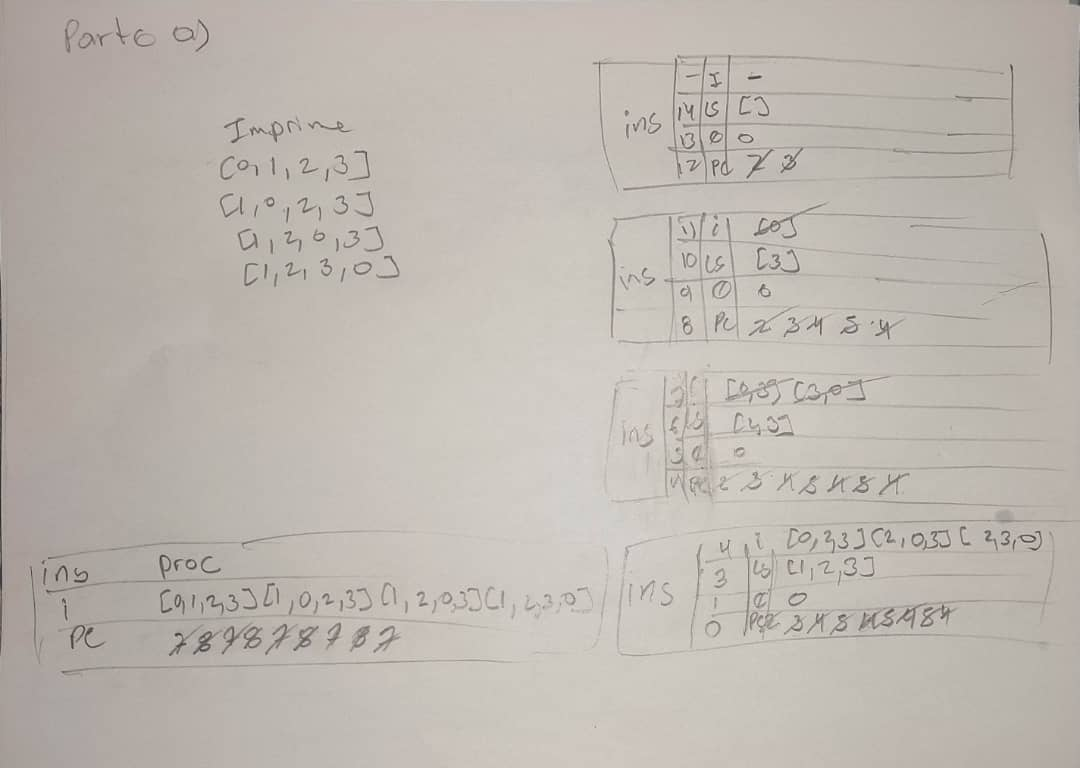 Parte a)
Imprime
[0,1,2,3]
[1,0,2,3]
[1,2,0,3]
[1,2,3,0]
ins
- I -
14 ls []
13 e 0
12 PC 2 3
ins
11 i [0]
10 ls [3]
9 e 0
8 PC 2 3 4 5 4
ins
i [0,3] [3,0]
6 ls [2,3]
5 e 0
PC 2 3 4 5 4 5 4
ins
4 i [0,2,3] [2,0,3] [2,3,0]
3 ls [1,2,3]
1 e 0
0 PC 2 3 4 5 4 5 4 5 4
ins proc
i [0,1,2,3] [1,0,2,3] [1,2,0,3] [1,2,3,0]
PC 7 8 7 8 7 8 7 8 7